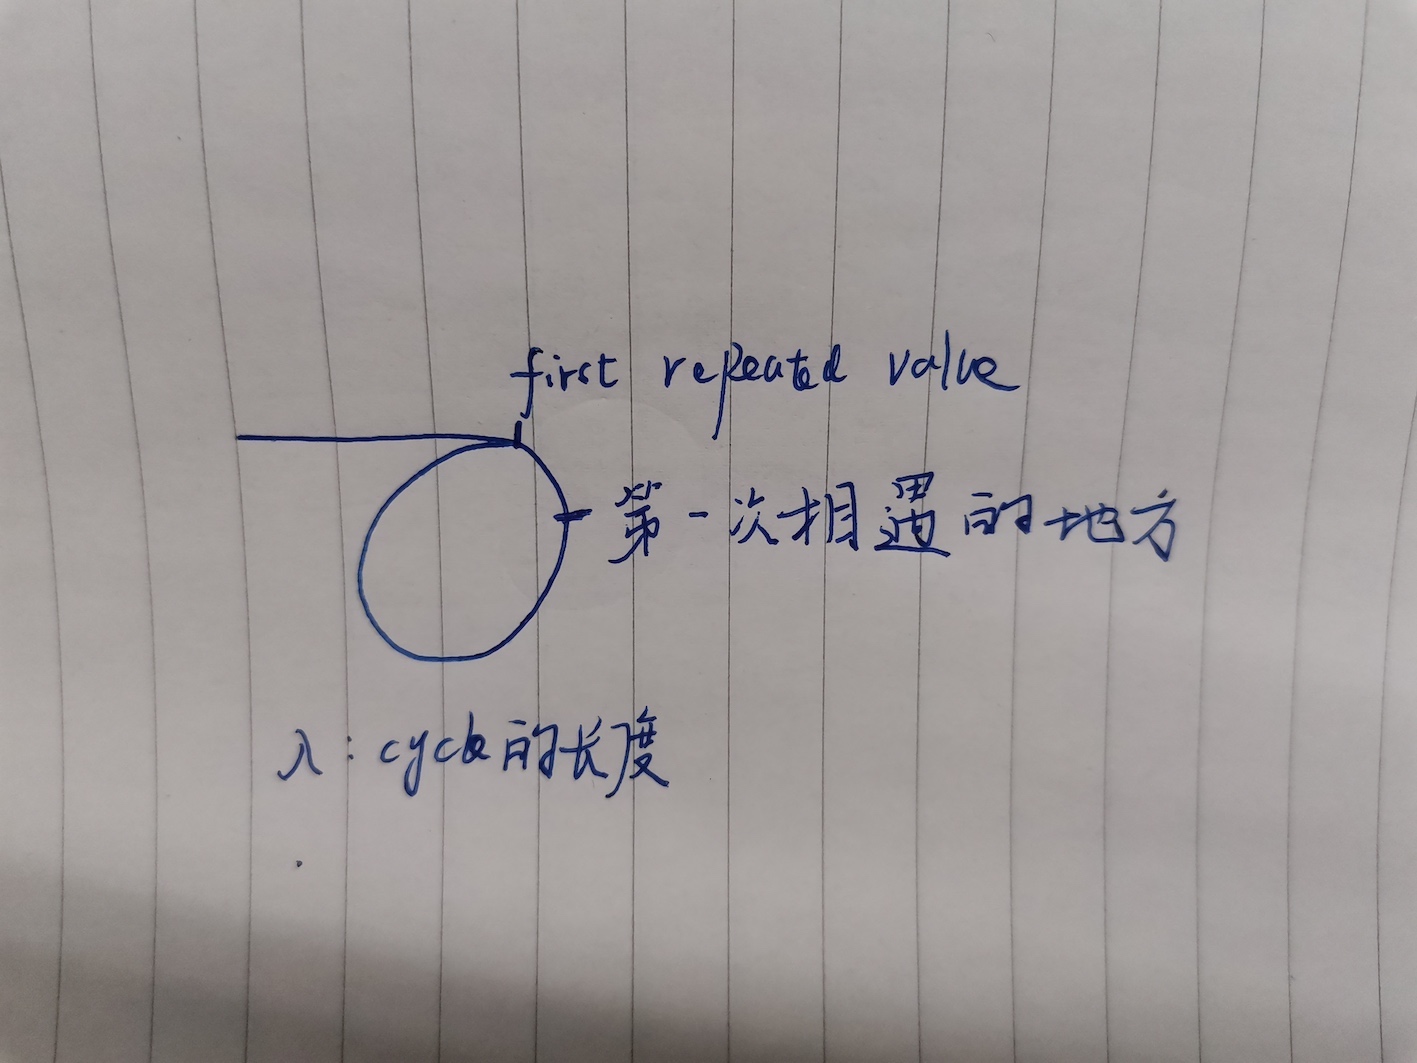 first repeated value
第一次相遇的地方
λ: cycle的长度